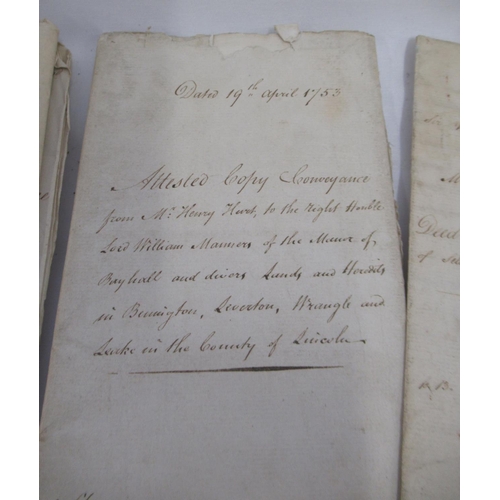 Dated 19th April 1753
Attested Copy Conveyance
from Mr. Henry Hurst, to the Right Honble
Lord William Manners of the Manor of
Rayhall and divers Lands and Heredits
in Bennington, Leverton, Wrangle and
Leake in the County of Lincoln.
Deed
of